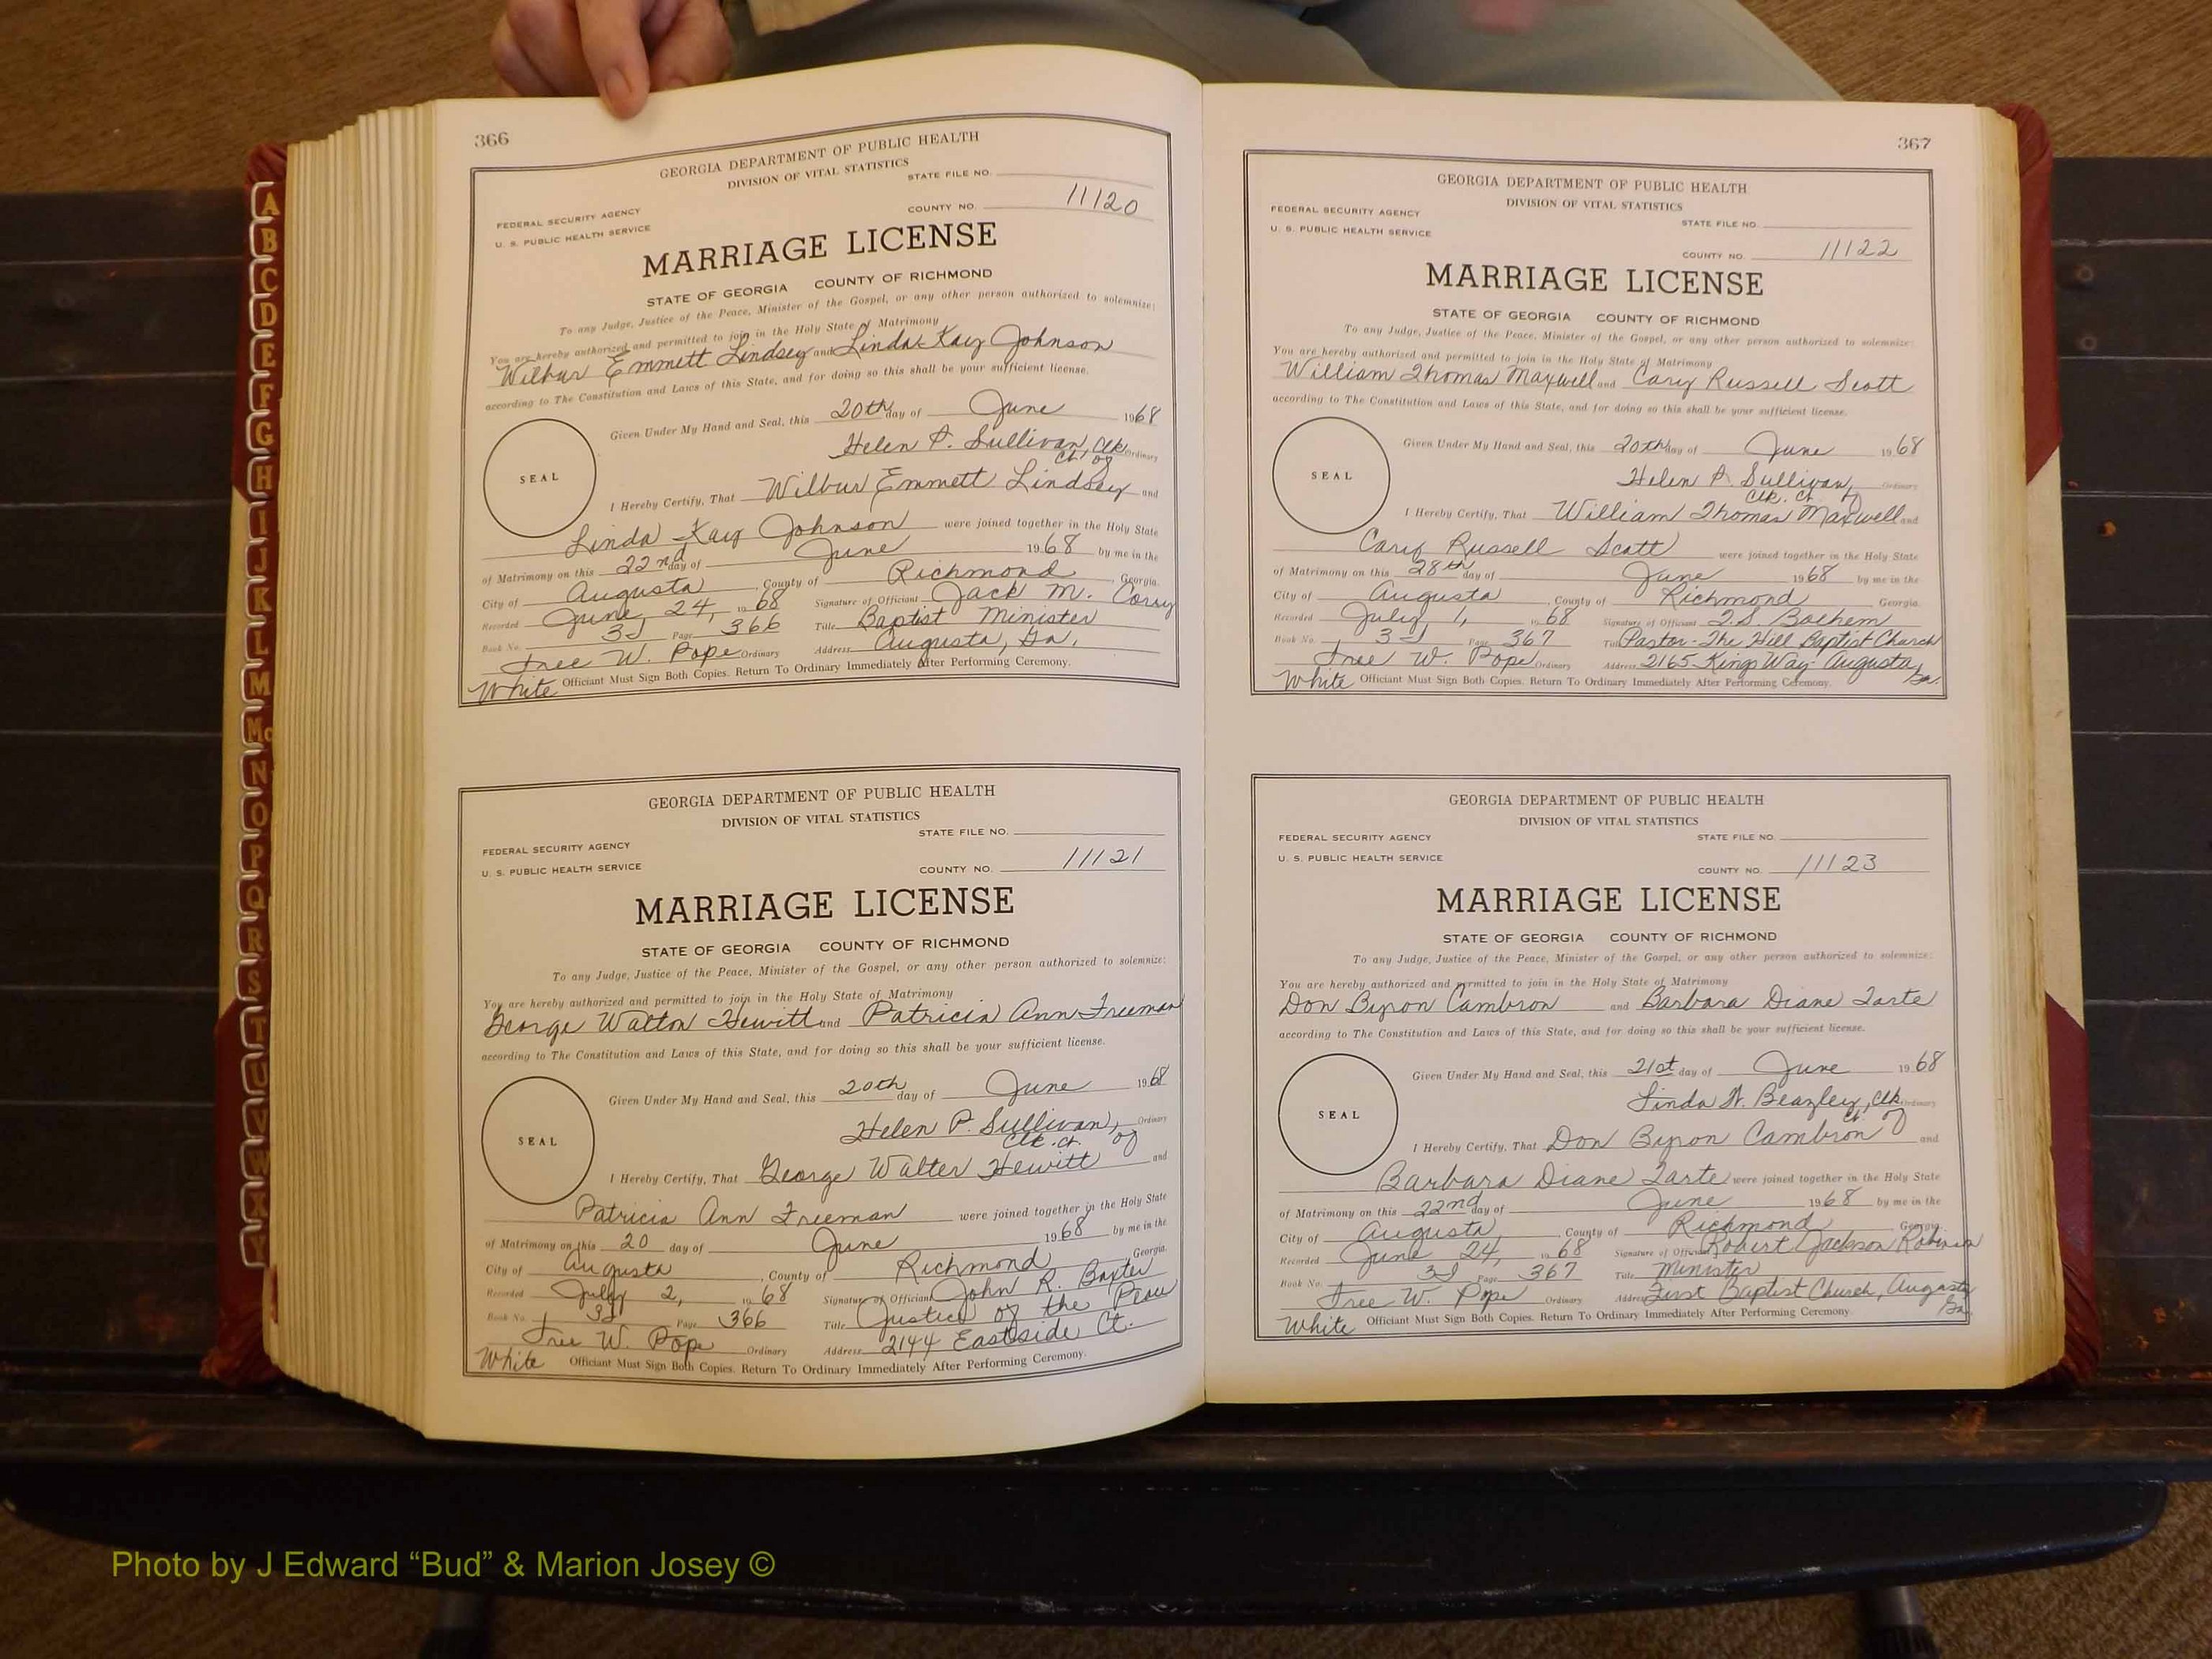 366
GEORGIA DEPARTMENT OF PUBLIC HEALTH
DIVISION OF VITAL STATISTICS
STATE FILE NO.
FEDERAL SECURITY AGENCY
U. S. PUBLIC HEALTH SERVICE
COUNTY NO. 11120
MARRIAGE LICENSE
STATE OF GEORGIA COUNTY OF RICHMOND
To any Judge, Justice of the Peace, Minister of the Gospel, or any other person authorized to solemnize:
You are hereby authorized and permitted to join in the Holy State of Matrimony
Wilbur Emmett Lindsey and Linda Kay Johnson
according to The Constitution and Laws of this State, and for doing so this shall be your sufficient license.
Given Under My Hand and Seal, this 20th day of June 1968
Helen P. Sullivan, Clk. Ordinary
Ct. of
SEAL
I Hereby Certify, That Wilbur Emmett Lindsey and
Linda Kay Johnson were joined together in the Holy State
of Matrimony on this 22nd day of June 1968 by me in the
City of Augusta, County of Richmond, Georgia.
Recorded June 24, 1968 Signature of Officiant Jack M.
Book No. 3J Page 366 Title Baptist Minister
Tree W. Pope Ordinary Address Augusta, Ga.
White Officiant Must Sign Both Copies. Return To Ordinary Immediately After Performing Ceremony.
GEORGIA DEPARTMENT OF PUBLIC HEALTH
DIVISION OF VITAL STATISTICS
STATE FILE NO.
FEDERAL SECURITY AGENCY
U. S. PUBLIC HEALTH SERVICE
COUNTY NO. 11121
MARRIAGE LICENSE
STATE OF GEORGIA COUNTY OF RICHMOND
To any Judge, Justice of the Peace, Minister of the Gospel, or any other person authorized to solemnize:
You are hereby authorized and permitted to join in the Holy State of Matrimony
George Walton Hewitt and Patricia Ann Freeman
according to The Constitution and Laws of this State, and for doing so this shall be your sufficient license.
Given Under My Hand and Seal, this 20th day of June 1968
Helen P. Sullivan, Ordinary
Clk. Ct. of
SEAL
I Hereby Certify, That George Walter Hewitt and
Patricia Ann Freeman were joined together in the Holy State
of Matrimony on this 20 day of June 1968 by me in the
City of Augusta, County of Richmond Georgia.
Recorded July 2, 1968 Signature of Officiant John R. Baxter
Book No. 3J Page 366 Title Justice of the Peace
Tree W. Pope Ordinary Address 2144 Eastside Ct.
White Officiant Must Sign Both Copies. Return To Ordinary Immediately After Performing Ceremony.
367
GEORGIA DEPARTMENT OF PUBLIC HEALTH
DIVISION OF VITAL STATISTICS
FEDERAL SECURITY AGENCY
STATE FILE NO.
U. S. PUBLIC HEALTH SERVICE
COUNTY NO. 11122
MARRIAGE LICENSE
STATE OF GEORGIA COUNTY OF RICHMOND
To any Judge, Justice of the Peace, Minister of the Gospel, or any other person authorized to solemnize:
You are hereby authorized and permitted to join in the Holy State of Matrimony
William Thomas Maxwell and Cary Russell Scott
according to The Constitution and Laws of this State, and for doing so this shall be your sufficient license.
Given Under My Hand and Seal, this 20th day of June 1968
Helen P. Sullivan, Ordinary
Clk. Ct. of
SEAL
I Hereby Certify, That William Thomas Maxwell and
Cary Russell Scott were joined together in the Holy State
of Matrimony on this 28th day of June 1968 by me in the
City of Augusta, County of Richmond Georgia.
Recorded July 1, 1968 Signature of Officiant
Book No. 3J Page 367 Title Pastor-The Hill Baptist Church
Tree W. Pope Ordinary Address 2165-Kings Way-Augusta, Ga.
White Officiant Must Sign Both Copies. Return To Ordinary Immediately After Performing Ceremony.
GEORGIA DEPARTMENT OF PUBLIC HEALTH
DIVISION OF VITAL STATISTICS
FEDERAL SECURITY AGENCY
STATE FILE NO.
U. S. PUBLIC HEALTH SERVICE
COUNTY NO. 11123
MARRIAGE LICENSE
STATE OF GEORGIA COUNTY OF RICHMOND
To any Judge, Justice of the Peace, Minister of the Gospel, or any other person authorized to solemnize:
You are hereby authorized and permitted to join in the Holy State of Matrimony
Don Byron Cambron and Barbara Diane Tarte
according to The Constitution and Laws of this State, and for doing so this shall be your sufficient license.
Given Under My Hand and Seal, this 21st day of June 1968
Linda W. Beazley, Clk. Ordinary
Ct. of
SEAL
I Hereby Certify, That Don Byron Cambron and
Barbara Diane Tarte were joined together in the Holy State
of Matrimony on this 22nd day of June 1968 by me in the
City of Augusta, County of Richmond, Georgia.
Recorded June 24, 1968 Signature of Officiant Robert Jackson Robinson
Book No. 3J Page 367 Title Minister
Tree W. Pope Ordinary Address First Baptist Church, Augusta, Ga.
White Officiant Must Sign Both Copies. Return To Ordinary Immediately After Performing Ceremony.
A
B
C
D
E
F
G
H
I
J
K
L
M
Mc
N
O
P
Q
R
S
T
U
V
W
X
Y
Photo by J Edward “Bud” & Marion Josey ©